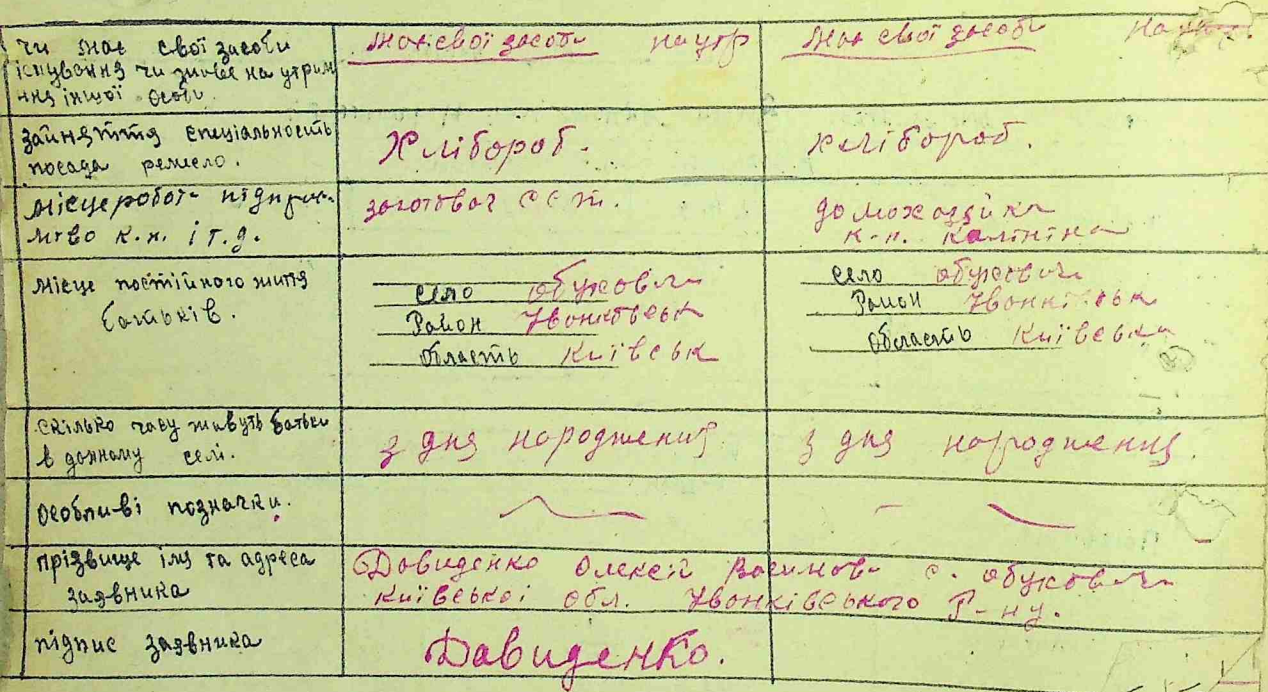 чи має свої засоби
існування чи живе на утрим
ння іншої особи.
має свої засоби на утр
має свої засоби
зайняття специальность
посада ремесло.
Хлібороб.
хлібороб.
місце роботи підприє-
мство к.н. і т.д.
заготовач ССТ.
домохазяйка
к-п. Калініна
місце постійного життя
батьків.
село Обуховичі
Район Іванківськ
Область Київськ
село Обуховичі
Район Іванківськ
Область Київська
скілько часу живуть батьки
в данному селі.
з дня народження
з дня народження.
особливі позначки.
прізвище імя та адреса
заявника
Давиденко Олексій с. Обуховичі
Київської обл. Іванківського р-ну.
підпис заявника
Давиденко.